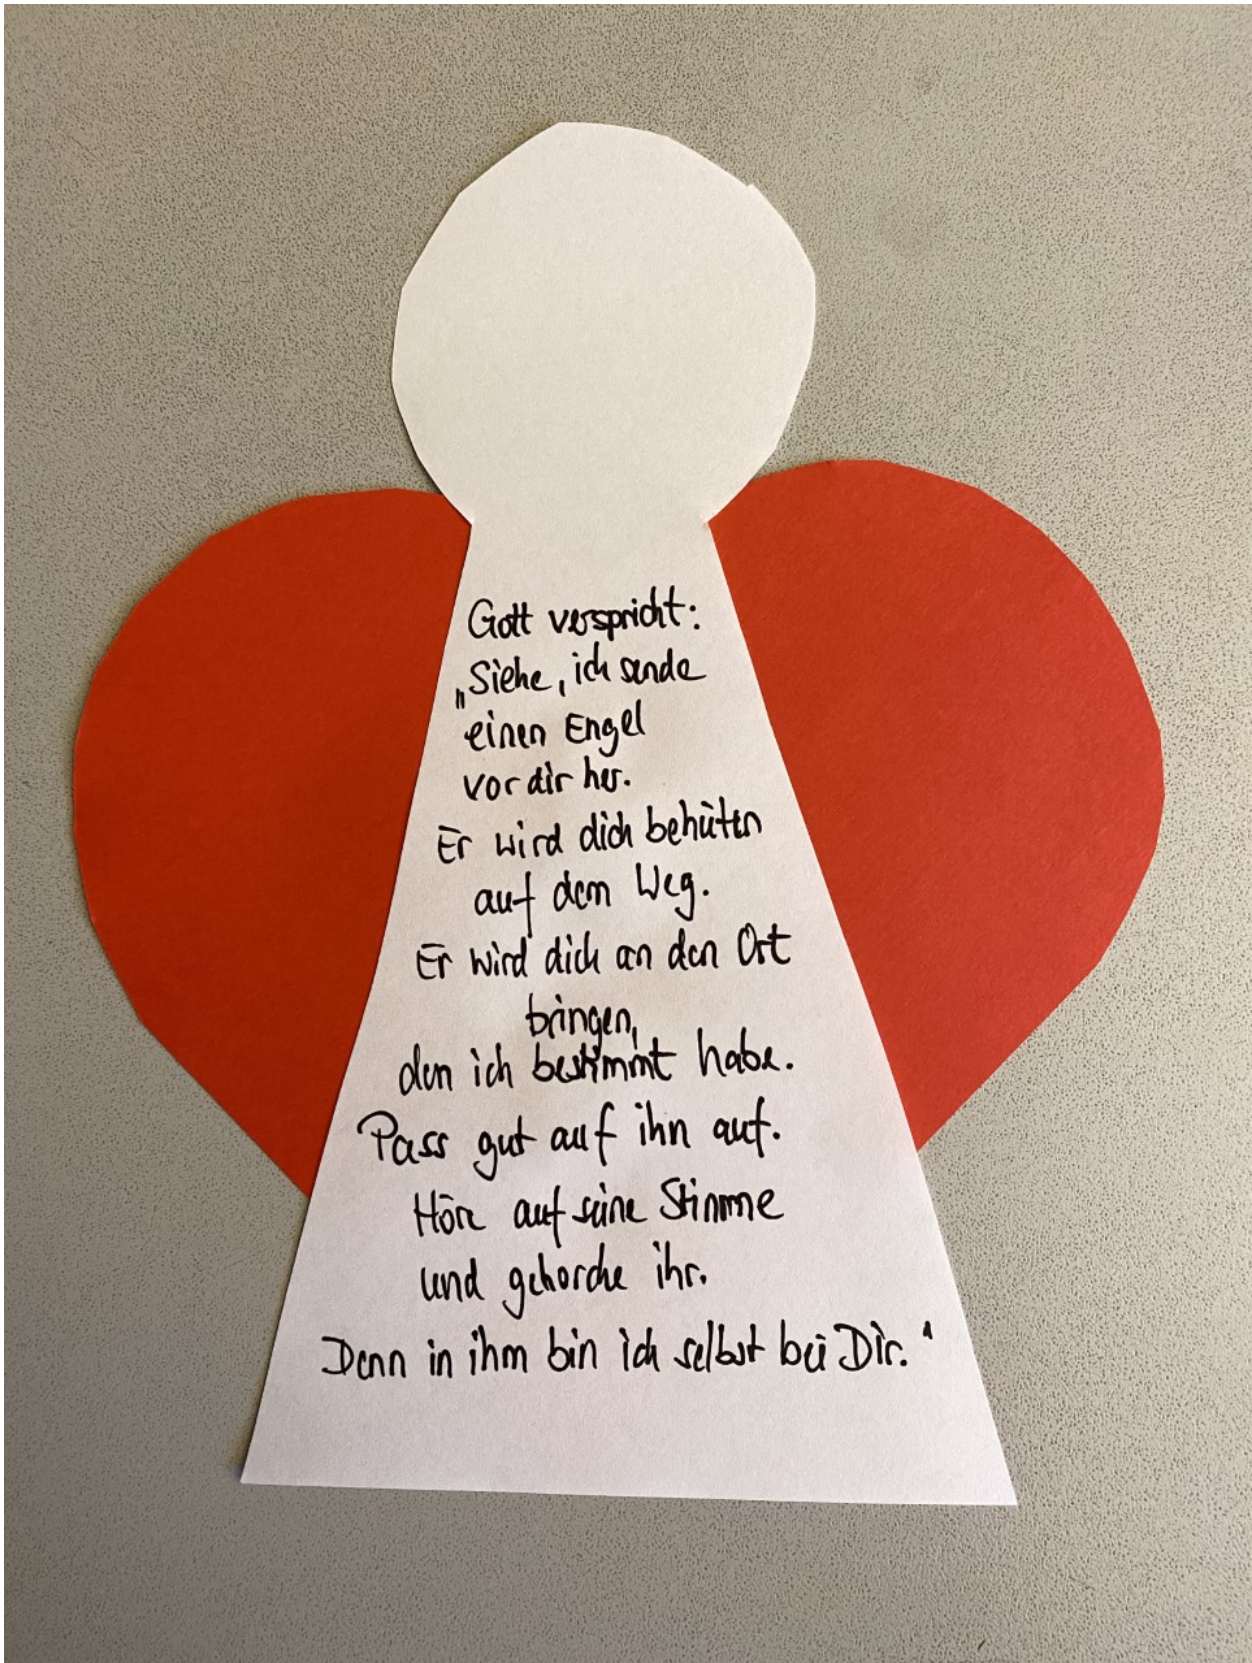 Gott verspricht:
„Siehe, ich sende
einen Engel
vor dir her.
Er wird dich behüten
auf dem Weg.
Er wird dich an den Ort
bringen,
den ich bestimmt habe.
Pass gut auf ihn auf.
Höre auf seine Stimme
und gehorche ihr.
Denn in ihm bin ich selbst bei Dir.“